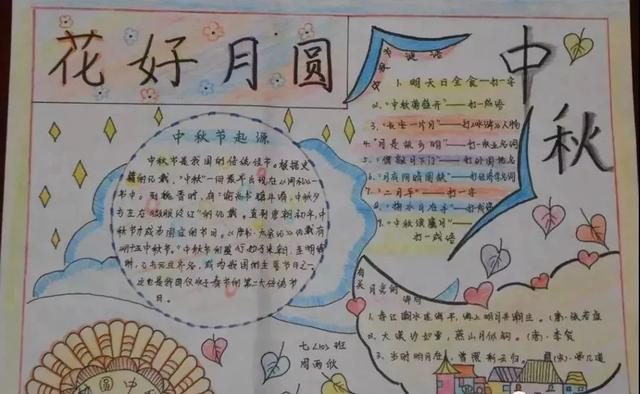 花好月圆
中秋
中秋节起源
中秋节是我国的传统佳节。根据史
籍的记载，“中秋”一词最早出现在《周礼》一
书中。到魏晋时，有“谕尚书镇牛渚，中秋夕
与左右微服泛江”的记载。直到唐朝初年，中
秋节才成为固定的节日。《唐书·太宗记》记载有
“八月十五中秋节”。中秋节的盛行始于宋朝，至明清
时，已与元旦齐名，成为我国的主要节日之一。
这也是我国仅次于春节的第二大传统节
日。
谜语
1. 明天日全食—打一字
2. “中秋菊盛开”—打一成语
3. “长安一片月”—打《水浒》人物
4. “月是故乡明”—打一
5. “
6. “月有阴晴圆缺”—打
7. “二月平”—打一字
8. “掬水月在手”—打
9. “中秋
打一成语
有关月亮的诗词
1. 春江潮水连海平，海上明月共潮生。（唐）张若虚
2. 大漠沙如雪，燕山月似钩。（唐）李贺
3. 当时明月在，曾照彩云归。（宋）晏几道
七（10）班
周雨欣
圆中